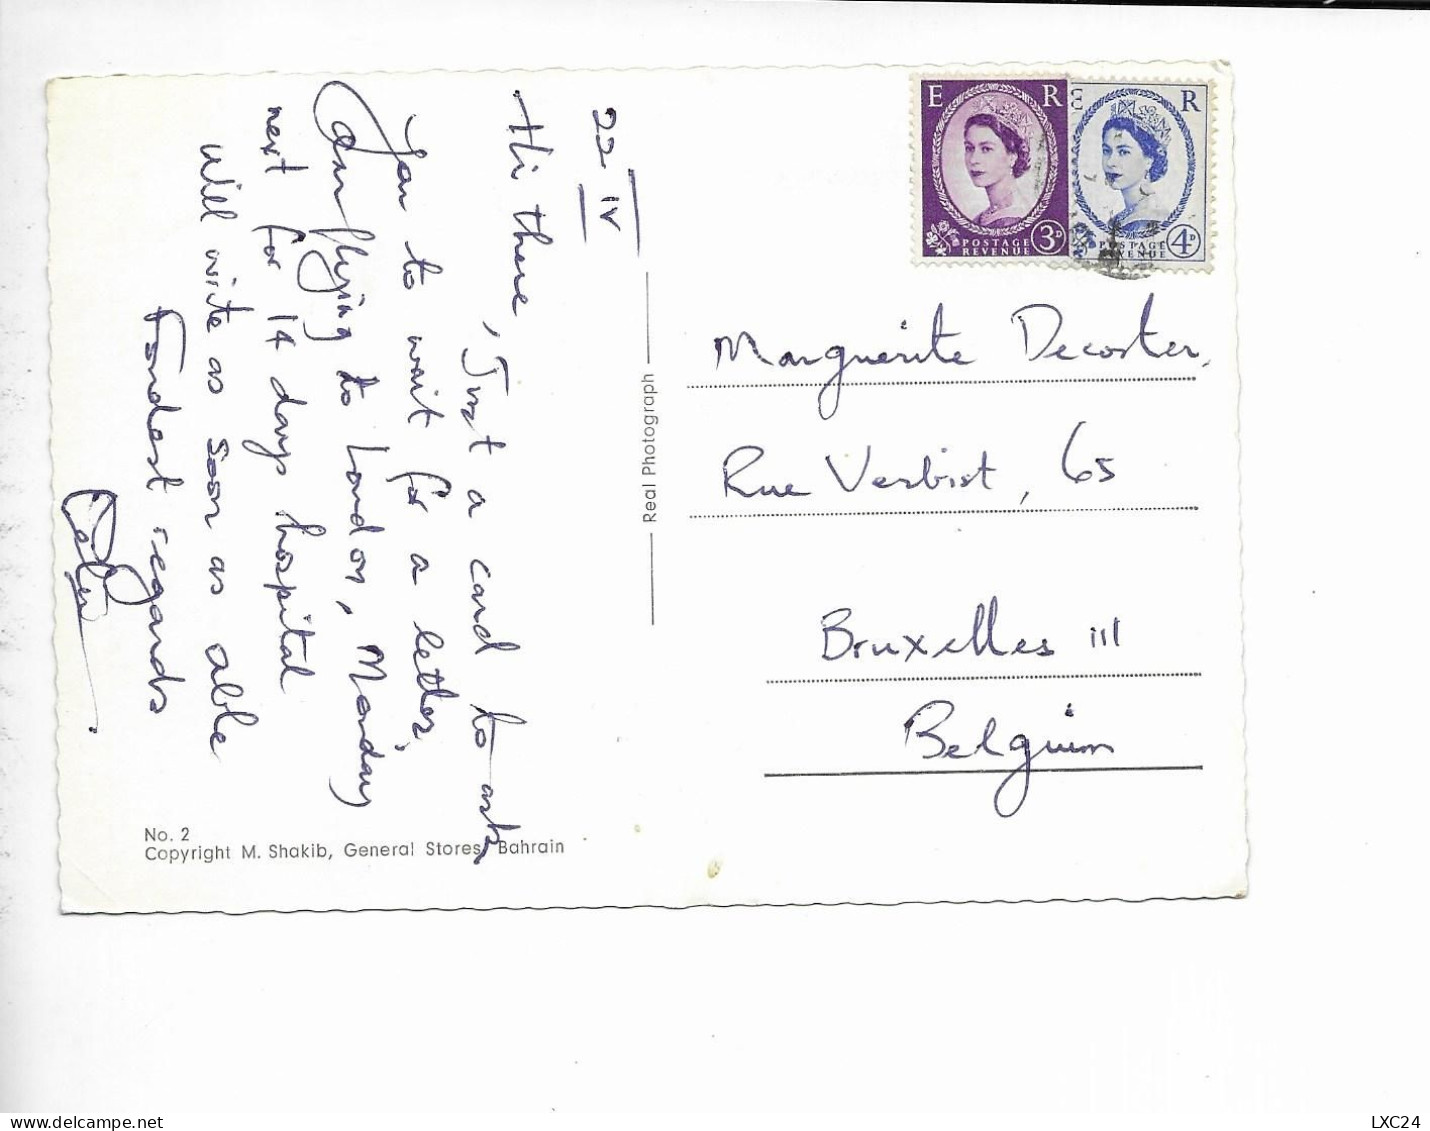 22 IV
Hi there,
Just a card to ask
you to wait for a letter,
am flying to London, Monday
next for 14 days hospital
will write as soon as able
Fondest regards
No. 2
Copyright M. Shakib, General Stores, Bahrain
Real Photograph
E R
POSTAGE
REVENUE
3D
E R
POSTAGE
REVENUE
4D
Marguerite Decoster,
Rue Verbist, 65
Bruxelles III
Belgium
www.delcampe.net
LXC24